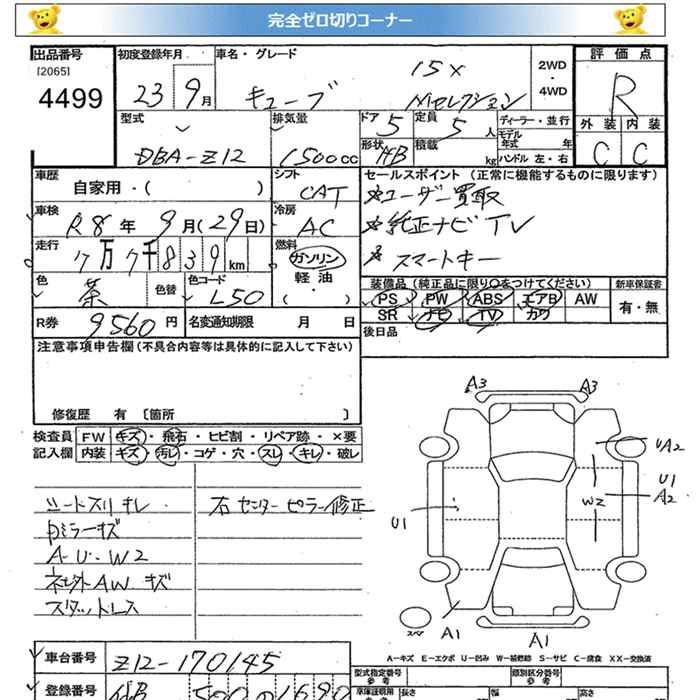 完全ゼロ切りコーナー
出品番号
[2065]
4499
初度登録年月
23 9月
車名・グレード
キューブ
15X
Mセレクション
2WD
・
4WD
評価点
R
外装 内装
C C
型式
DBA-Z12
排気量
1500cc
ドア 5
定員 5人
形状 HB
積載 kg
ディーラー・並行
モデル年式 年
ハンドル 左・右
車歴
自家用・( )
シフト
CAT
セールスポイント (正常に機能するものに限ります)
※ユーザー買取
※純正ナビ TV
※スマートキー
車検
R8年 9月(29日)
冷房
AC
走行
7万7千839km
燃料
ガソリン
軽油
・( )
色
茶
色替
色コード
L50
装備品 (純正品に限り○をつけてください)
新車保証書
PS PW ABS エアB AW
SR ナビ TV カワ
有・無
R券 9560円
名変通知期限 月 日
後日品
注意事項申告欄(不具合内容等は具体的に記入して下さい)
修復歴 有 〔箇所 〕
検査員記入欄
FW キズ・飛石・ヒビ割・リペア跡・×要
内装 キズ・汚レ・コゲ・穴・スレ・キレ・破レ
シートスリ キレ
内ミラーキズ
A・U・W2
社外AW キズ
スタッドレス
右センターピラー修正
A3 A3
UA2
U1
A2
W2
U1
スペア
A1 A1
A-キズ E-エクボ U-凹み W-補修跡 S-サビ C-腐食 XX-交換済
車台番号 Z12-170145
登録番号
型式指定番号
参考
類別区分番号
参考
長さ 幅 高さ